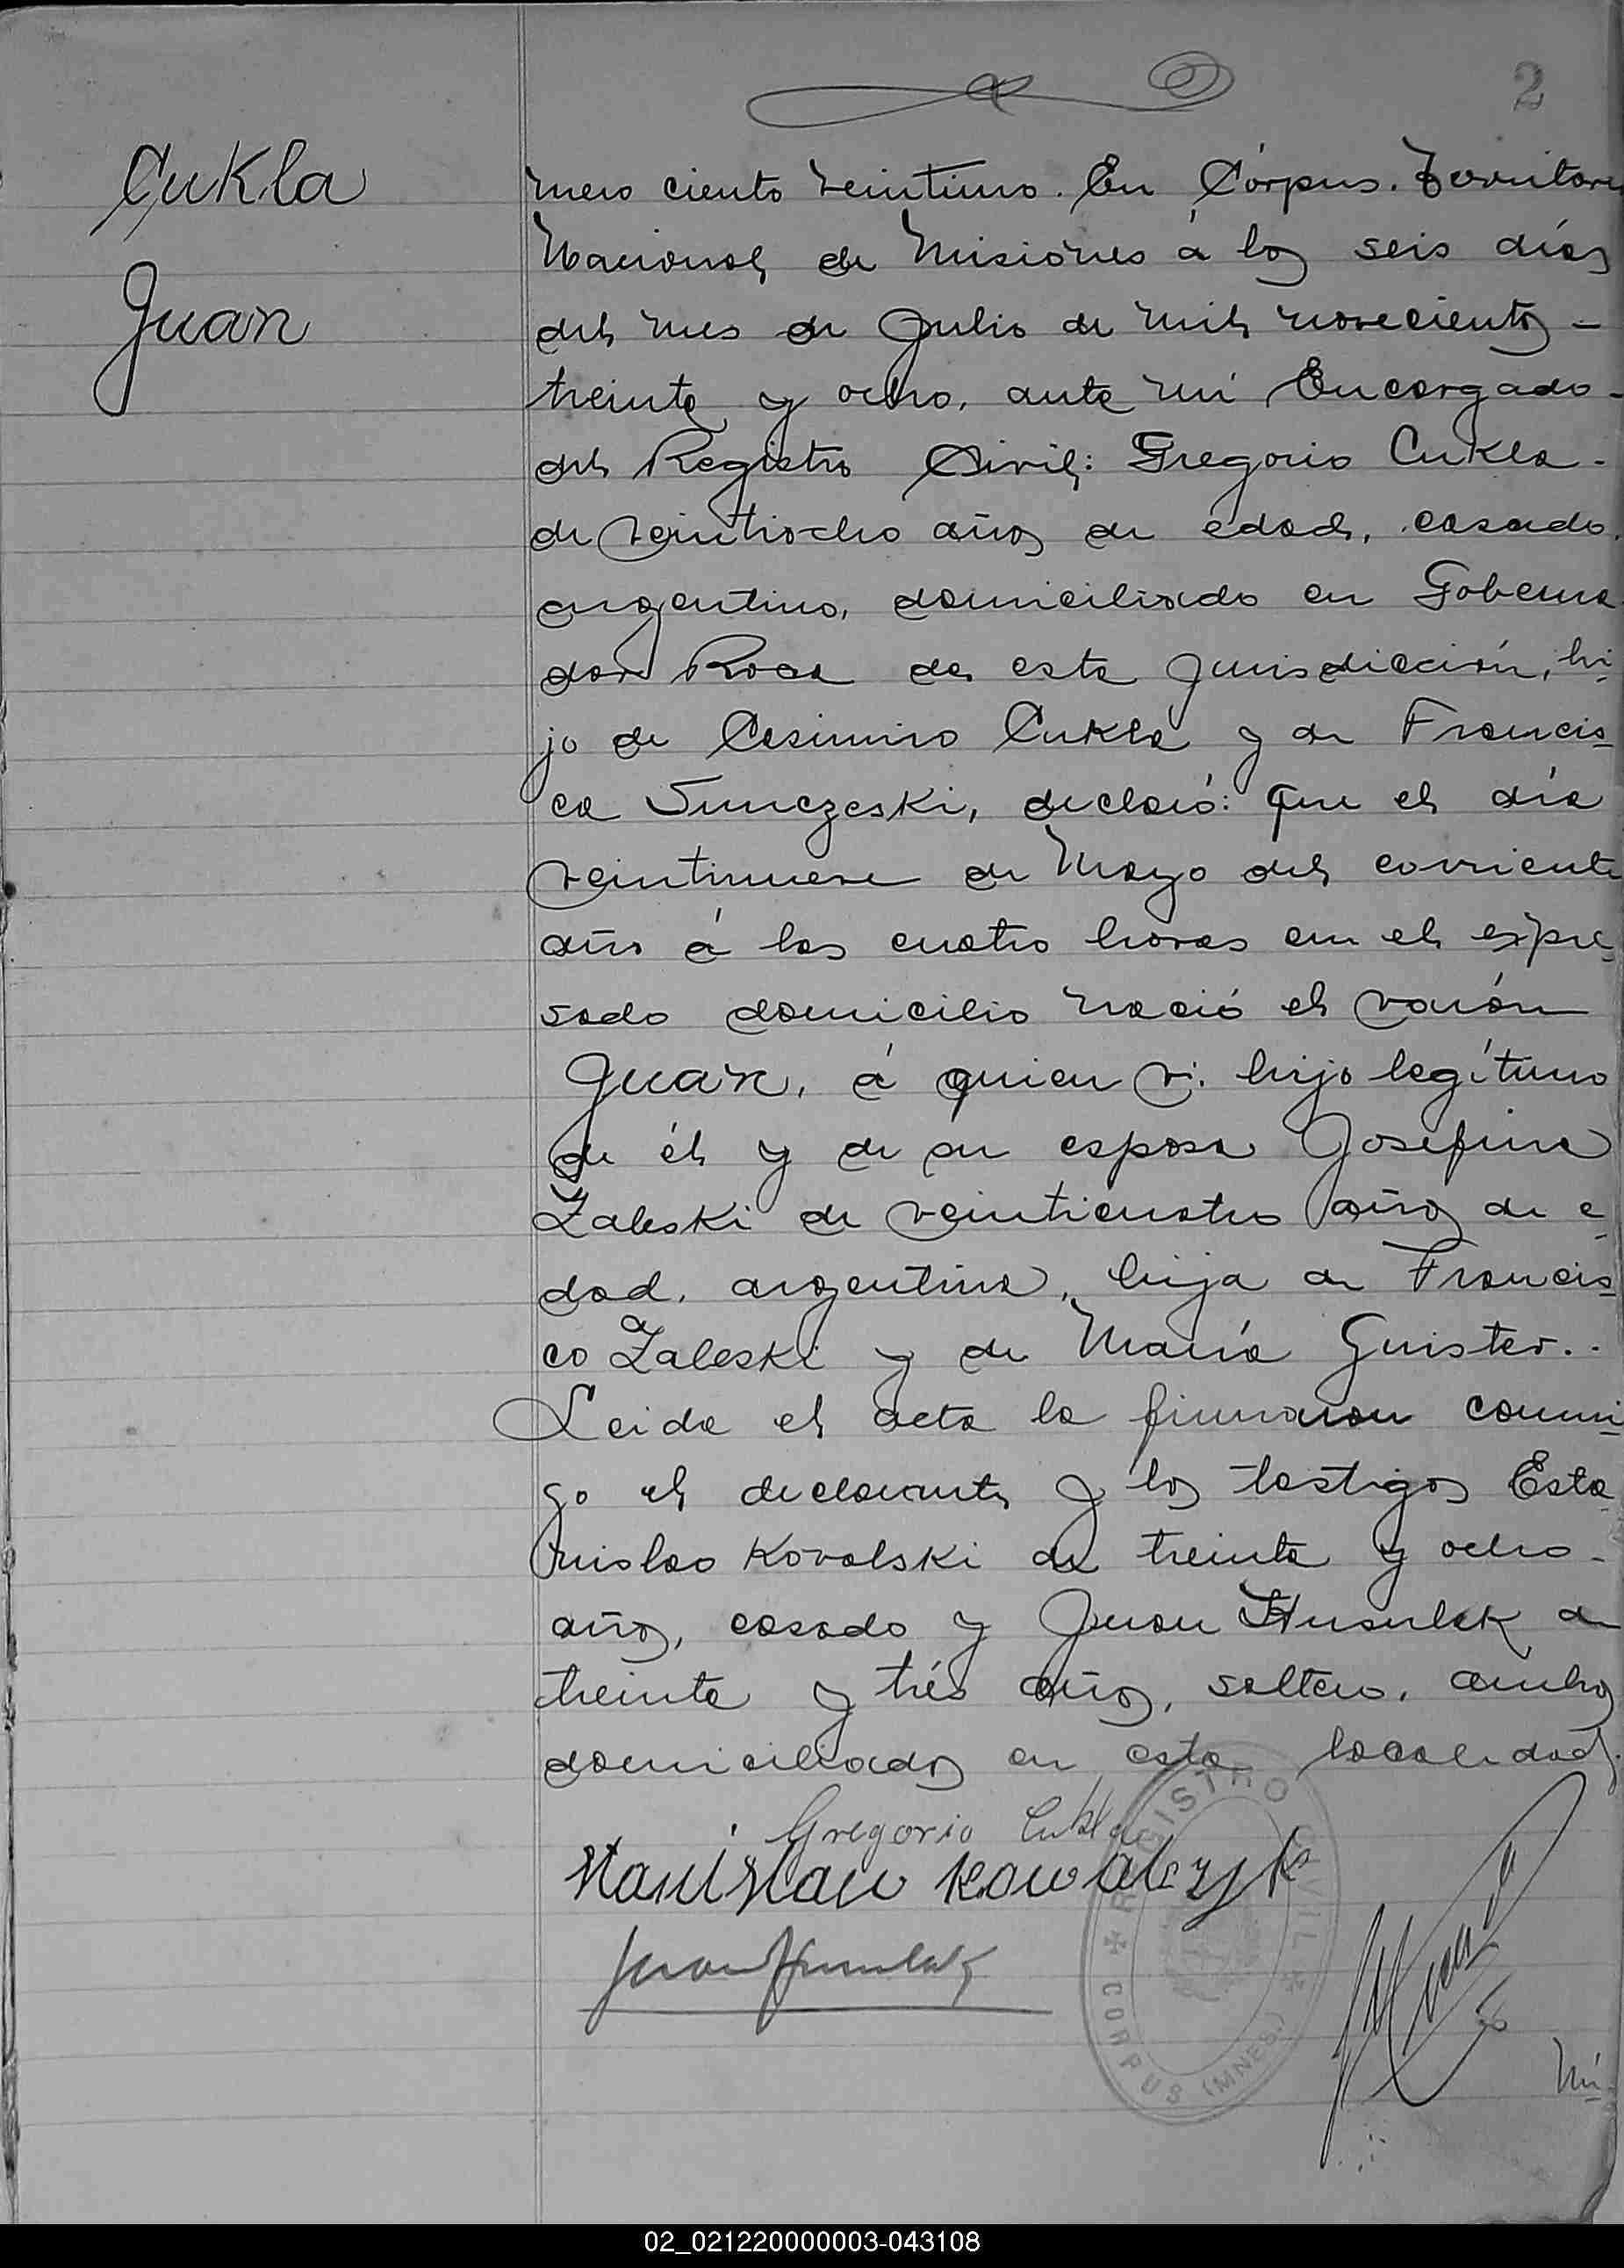 2
Cukla
Juan
mero ciento veintiuno. En Córpus. Territorio
Nacional de Misiones á los seis días
del mes de Julio de mil novecientos -
treinta y ocho, ante mí Encargado -
del Registro Civil: Gregorio Cukla -
de veintiocho años de edad, casado,
argentino, domiciliado en Goberna
dor Roca de esta jurisdicción, hi-
jo de Casimiro Cukla y de Francis-
ca Sunczeski, declaró: Que el día
veintinueve de Mayo del corriente
año á las cuatro horas en el expre-
sado domicilio nació el varón
Juan, á quien vi. hijo legítimo
de él y de su esposa Josefina
Zaleski de veinticuatro años de e-
dad, argentina, hija de Francis-
co Zaleski y de María Guister..
Leida el acta la firmaron conmi-
go el declarante y los testigos Esta-
nislao Kovalski de treinta y ocho -
años, casado y Juan Husulak de
treinta y trés años, soltero, ambos
domiciliados en esta localidad.
Gregorio Cukla
Stanislaw Kowalczyk
Juan
REGISTRO CIVIL
CORPUS (MNES.)
Nú-
02_021220000003-043108